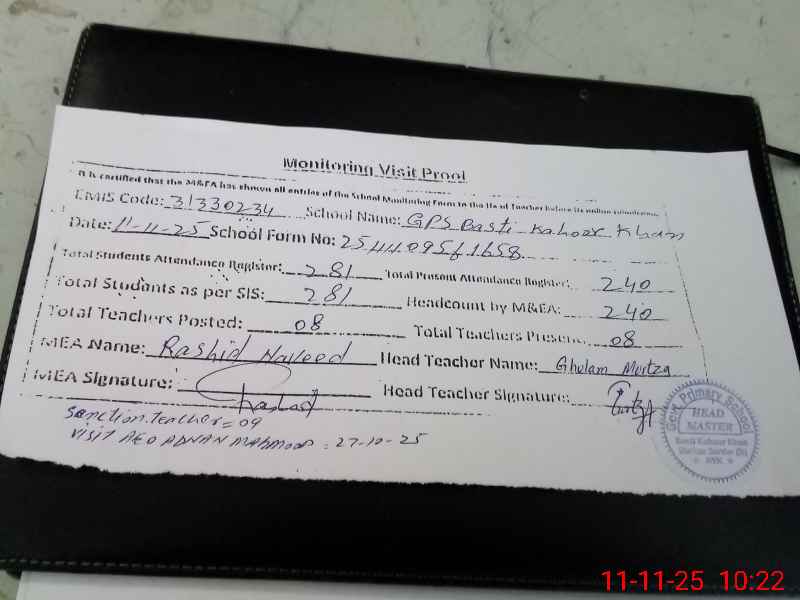 Monitoring Visit Proof
It is certified that the M&EA has shown all entries of the School Monitoring Form to the Head Teacher before its online submission.
EMIS Code: 31330234 School Name: GPS Basti Kahoor Khan
Date: 11-11-25 School Form No:
Total Students Attendance Register: 281 Total Present Attendance Register: 240
Total Students as per SIS: 281 Headcount by M&EA: 240
Total Teachers Posted: 08 Total Teachers Present: 08
MEA Name: Rashid Naveed Head Teacher Name: Ghulam Murtza
MEA Signature: Head Teacher Signature:
Sanction teacher = 09
Visit AEO ADNAN MAHMOOD = 27-10-25
Govt. Primary School
HEAD
MASTER
Basti Kahoor Khan
RYK
11-11-25 10:22